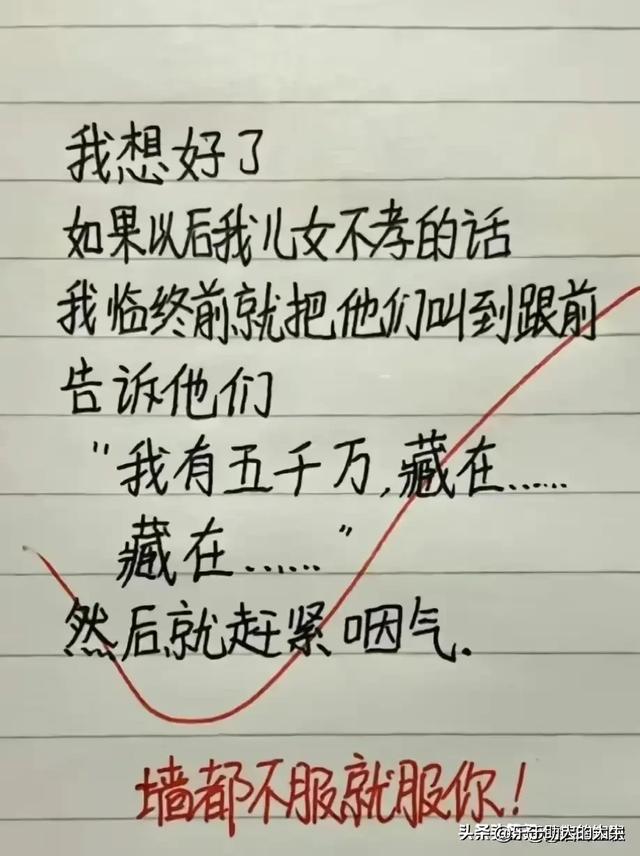 我想好了
如果以后我儿女不孝的话
我临终前就把他们叫到跟前
告诉他们
"我有五千万,藏在……
藏在……"
然后就赶紧咽气.
墙都不服就服你!
头条@乐于助人的大臣